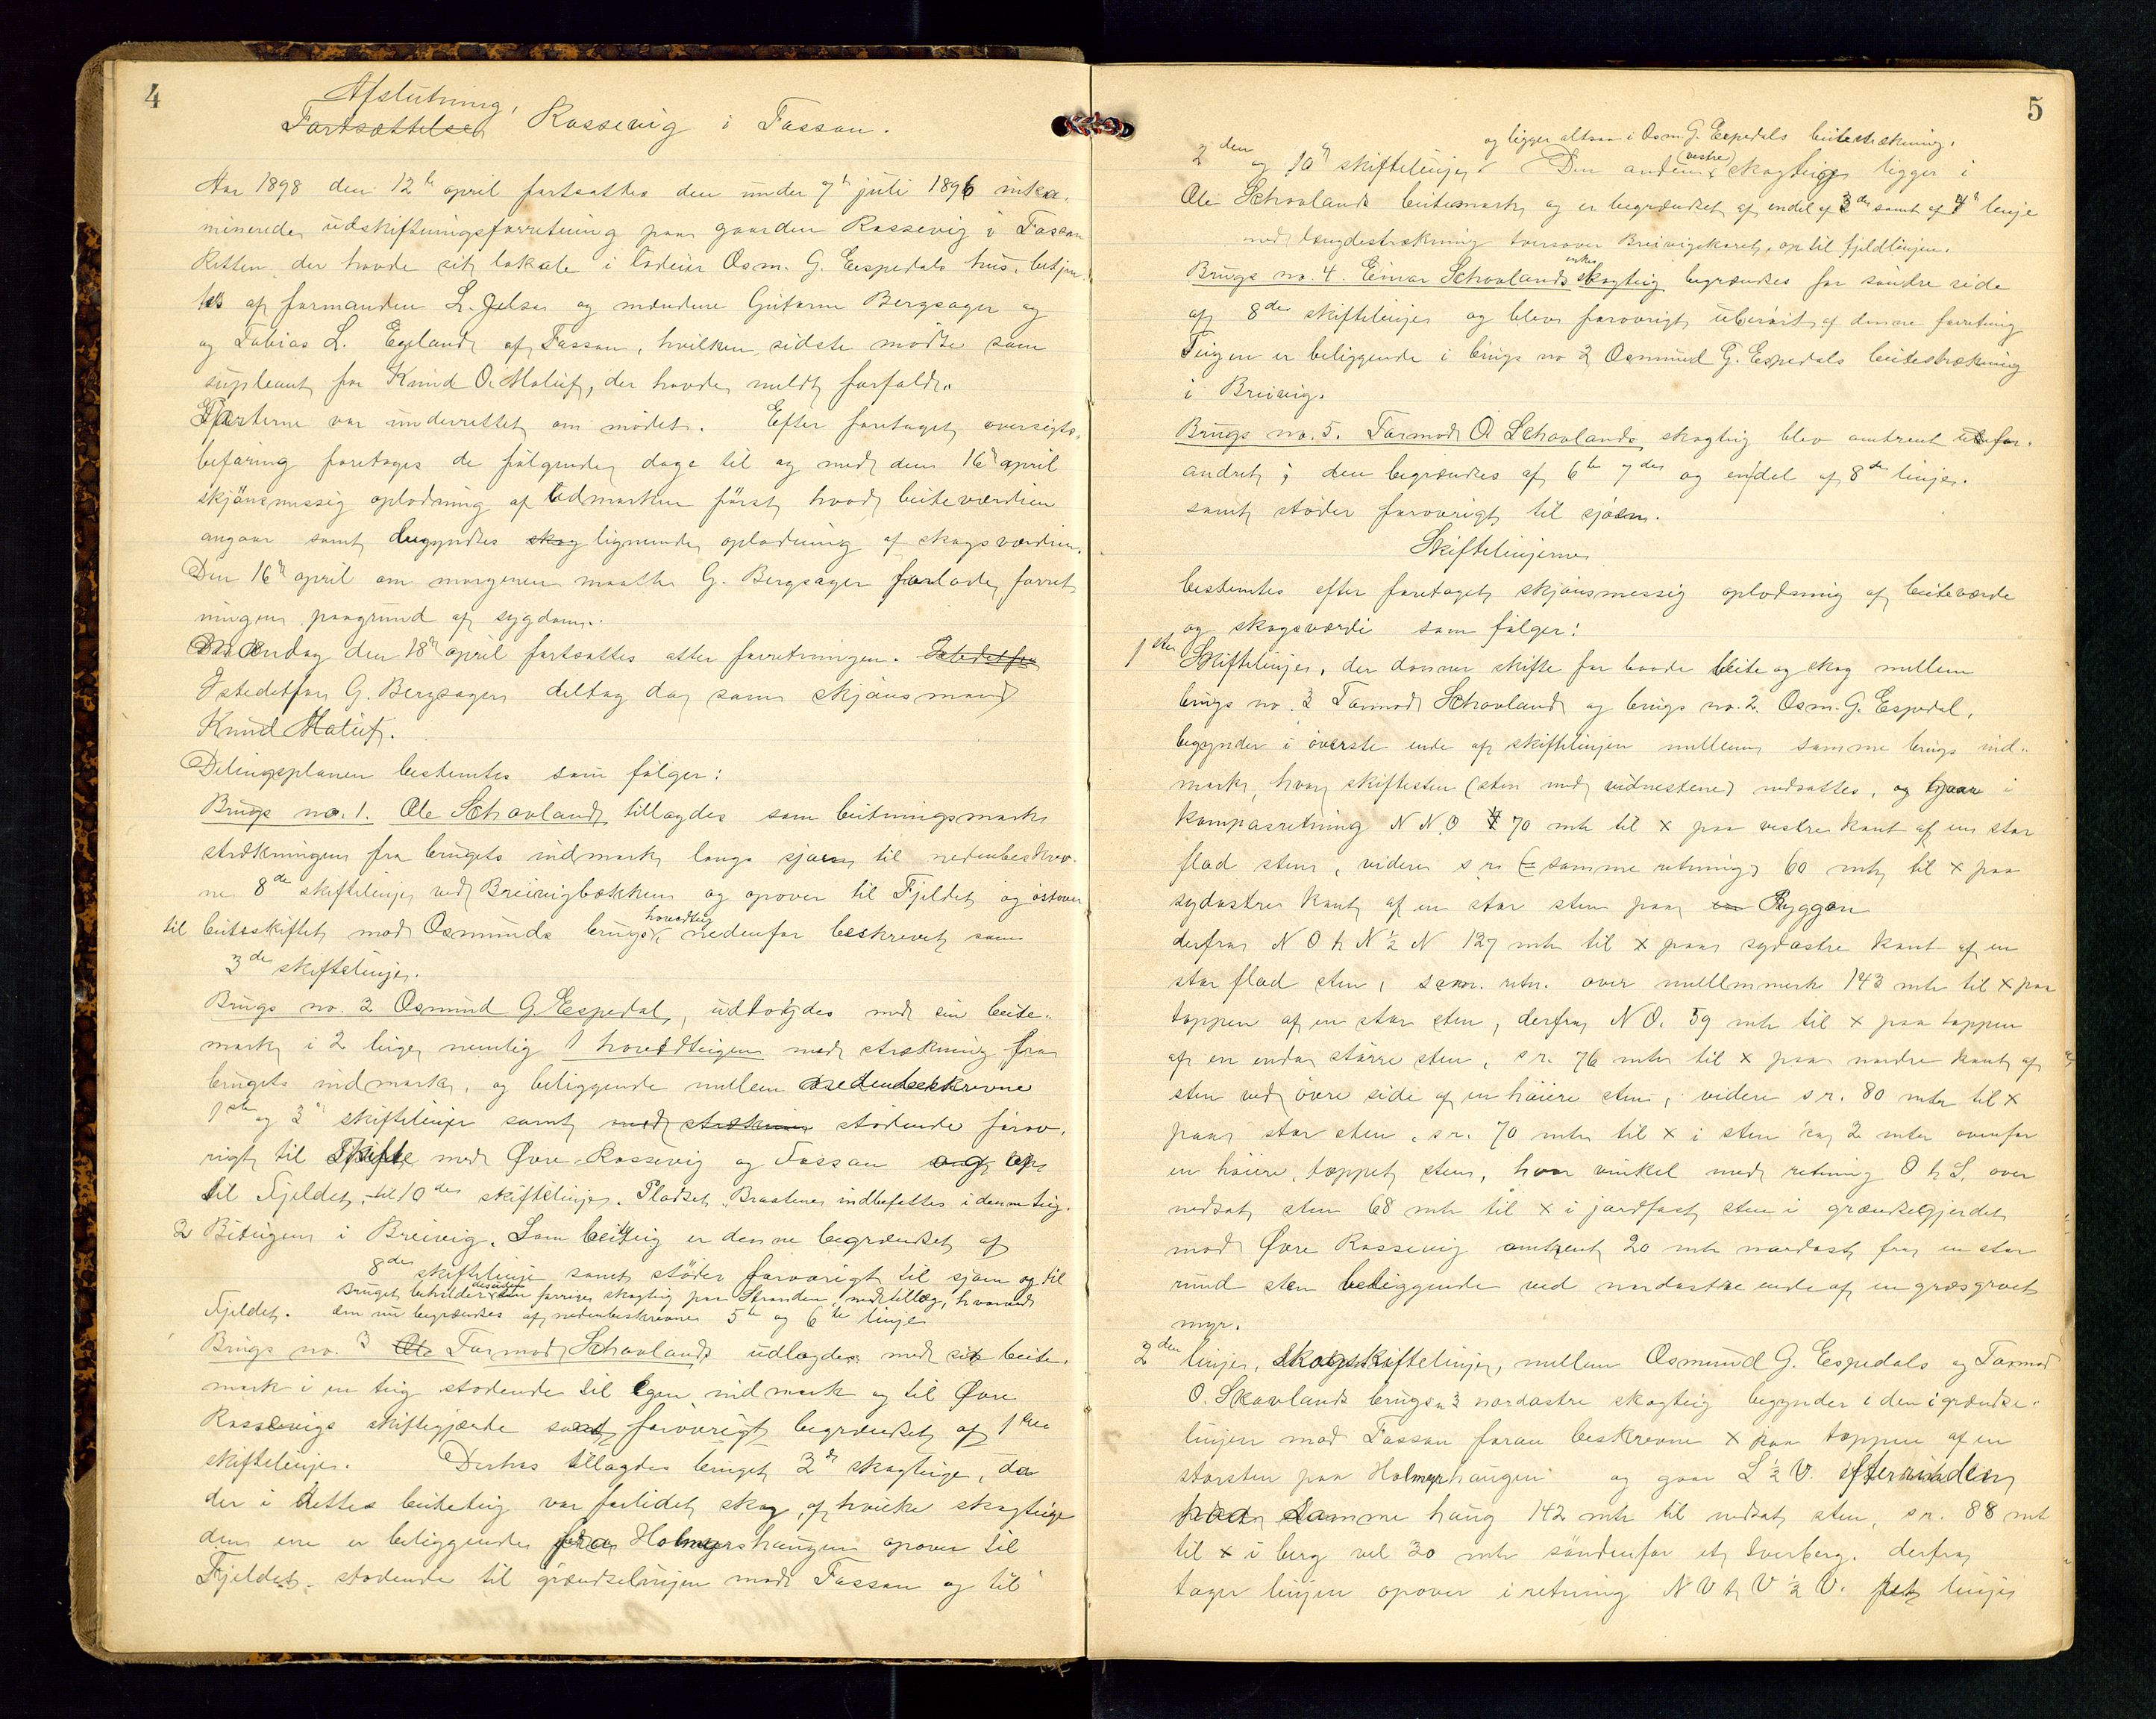 4
Afslutning,
Fortsættelse Rossevig i Fossan.
Aar 1898 den 12te april fortsattes den under 7de juli 1896 inka-
minerede udskiftningsforretning paa gaarden Rossevig i Fossan
Retten, der havde sit lokale i lodeier Osm. G. Eespedals hus, betjen-
tes af formanden L. Jelsa og mændene Gutorm Bergsager og
og Tobias L. Egeland af Fossan, hvilken sidste mødte som
supleant for Knud O. Maluf, der havde meldt forfald.
Parterne var underrettet om mødet. Efter foretaget oversigts-
befaring foretoges de følgende dage til og med den 16de april
skjønsmessig oplodning af Udmarken først hvad beiteværdien
angaar samt begyndtes skog lignende oplodning af skogsværdien.
Den 16de april om morgenen maatte G. Bergsager forlade forret-
ningen paagrund af sygdom.
Mandag den 18de april fortsattes atter forretningen. Istedetfor
Istedetfor G. Bergsager deltog da som skjønsmand
Knud Maluf.
Delingsplanen bestemtes som følger:
Brugs no. 1. Ole Schovland tillagdes som beitningsmark
strækningen fra brugets indmark langs sjøen til nedenbeskrev-
ne 8de skiftelinje ved Breivigbækken og opover til Fjeldet og østover
til beiteskiftet mod Osmunds brugs hovedteig nedenfor beskrevet som
3de skiftelinje.
Brugs no. 2 Osmund G. Eespedal, udlagdes med sin beite-
mark i 2 teige, nemlig 1 hovedteigen med strækning fra
brugets indmark, og beliggende mellem nedenbeskrevne
1ste og 3de skiftelinjer samt med strækning stødende forøv-
rigt til Skifte mod Øvre Rossevig og Fossan og op
til Fjeldet, til 10de skiftelinje. Pladset Braatene indbefattes i denne teig.
2 Biteigen i Breivig. Som beiteteig er denne begrændset af
8de skiftelinje samt støder forøvrigt til sjøen og til
Bruget beholder desuden den forrige skogteig paa Stranden, med tillæg, hvorved
Fjeldet. den nu begrændses af nedenbeskrevne 5te og 6te linje
Brugs no. 3 Ole Tormod Schovland, udlagdes med sit beite-
mark i en teig stødende til egen indmark og til Øvre
Rossevigs skiftegjærde samt forøvrigt begrændset af 1ste
skiftelinje. Derhos tillagdes bruget 2de skogteige, da
der i dettes beiteteig var forlidet skog, af hvilke skogteige
den ene er beliggende fra Holmyrshaugen opover til
Fjeldet, stødende til grændselinjen mod Fossan og til
5
og ligger altsaa i Osm. G. Espedals beitestrækning.
2den og 10de skiftelinje. Den anden (vestre) skogteig ligger i
Ole Schovlands beitemark og er begrændset af endel af 3de samt af 4de linje
med længdestrækning tversover Breivigskaret, op til fjeldlinjen.
Brugs no. 4. Einar Schovlands skogteig begrændses for søndre side
af 8de skiftelinje og blev forøvrigt uberørt af denne forretning
Teigen er beliggende i brugs no 2 Osmund G. Espedals beitestrækning
i Breivig.
Brugs no. 5. Tormod O Schovlands skogteig blev omtrent ufor-
andret, den begrændses af 6te 7de og endel af 8de linje.
samt støder forøvrigt til sjøen.
Skiftelinjerne
bestemtes efter foretaget skjønsmessig oplodning af beiteværde
og skogsværdi som følger:
1ste Skiftelinje, der danner skifte for baade beite og skog mellem
brugs no. 3 Tormod Schovland og brugs no. 2. Osm. G. Espedal,
begynder i øverste ende af skiftelinjen mellem samme brugs ind-
mark, hvor skiftesten (sten med vidnestene) nedsattes, og gaar i
kompasretning N N.O 70 mtr til x paa vestre kant af en stor
flad sten, videre s r. (= samme retning) 60 mtr til x paa
sydøstre kant af en stor sten paa Ryggen
derfra N O t. N ½ N 127 mtr til x paa sydøstre kant af en
stor flad sten, sam. retn. over mellemmerke 143 mtr til x paa
toppen af en stor sten, derfra N O. 59 mtr til x paa toppen
af en endnu større sten, s r. 76 mtr til x paa nordre kant af
sten ved øvre side af en høiere sten, videre s r. 80 mtr til x
paa stor sten, s r. 70 mtr til x i sten ca 2 mtr ovenfor
en høiere, toppet sten, hvor vinkel med retning O t. S. over
nedsat sten 68 mtr til x i jordfast sten i grændsegjerdet
mod Øvre Rossevig omtrent 20 mtr nordost fra en stor
rund sten beliggende ved nordøstre ende af en græsgroet
myr.
2den linje, skogskiftelinje, mellem Osmund G. Espedals og Tormod
O. Skovlands brugs 3 nordøstre skogteig begynder i den i grændse-
linjen mod Fossan foran beskrevne x paa toppen af en
storsten paa Holmyrhaugen og gaar S ½ V. efter randen
paa samme haug 142 mtr til nedsat sten, s r. 88 mtr
til x i berg vel 30 mtr søndenfor et tverberg. derfra
tager linjen opover i retning N V t. V ½ V. linje